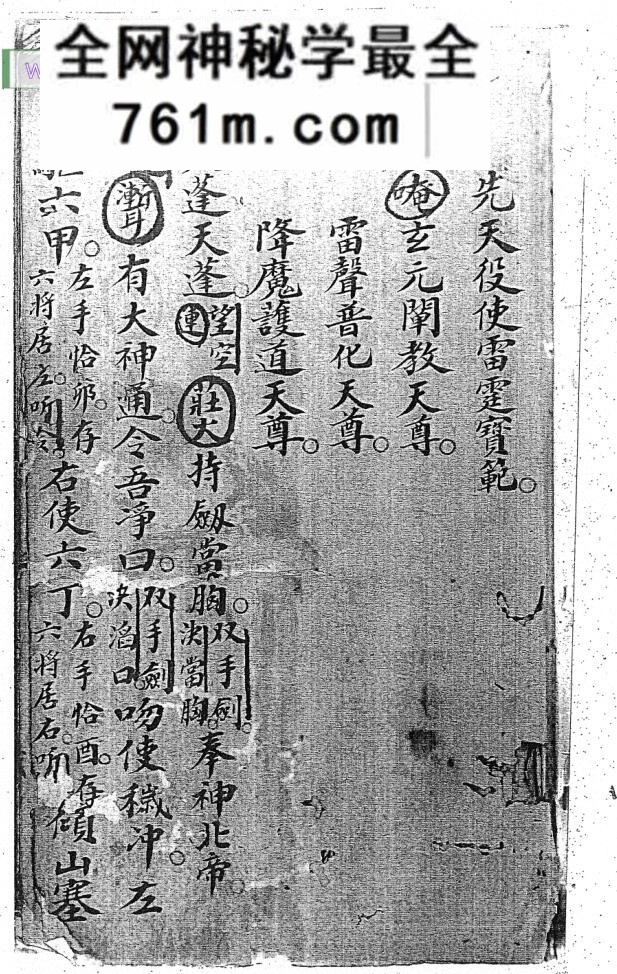 全网神秘学最全
761m.com
W
先天役使雷霆寳範。
唵玄元闡教天尊。
雷聲普化天尊。
降魔護道天尊。
蓬天蓬。連望空莊大持劔當胸。双手劍决當胸。奉神北帝。
有大神通。令吾淨口。双手劍决滔口吻使穢冲。左
六甲。左手恰卯。存六将居左听令。右使六丁。右手恰酉。存六将居右听山塞